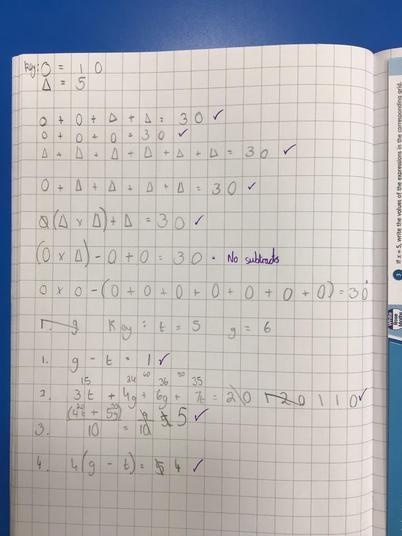 key: O = 10
Δ = 5
O + O + Δ + Δ = 30 ✓
O + O + O = 30 ✓
Δ + Δ + Δ + Δ + Δ + Δ = 30 ✓
O + Δ + Δ + Δ + Δ = 30 ✓
(Δ × Δ) + Δ = 30 ✓
(O × Δ) - O + O = 30 . No subtracts
O × O - (O + O + O + O + O + O + O) = 30
Key: t = 5 g = 6
1. g - t = 1 ✓
15 24 60 36 35
2. 3t + 4g + 6g + 7t = 110 ✓
3. (4t + 5g) 5 ✓
10 = 10
4. 4(g - t) = 4 ✓
3 If x = 5, write the values of the expressions in the corresponding grid.
White Rose Maths